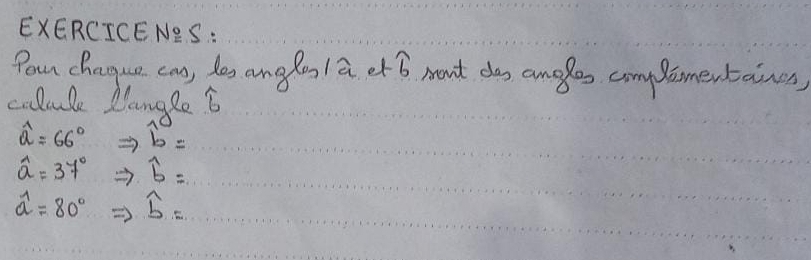 EXERCICE Nº 5 :
Pour chaque cas, les angles / â et b̂ sont des angles complémentaires,
calcule l'angle b̂
â = 66° ⇒ b̂ =
â = 37° ⇒ b̂ =
â = 80° ⇒ b̂ =